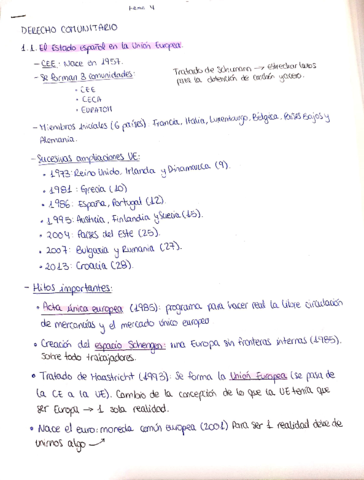 tema 4
DERECHO COMUNITARIO
1.1. El Estado español en la Unión Europea.
- CEE. Nace en 1957.
- Se forman 3 comunidades:
• CEE
• CECA
• EURATOM
Tratado de Schumann → estrechar lazos
para la obtención de carbón y acero.
- Miembros iniciales (6 países). Francia, Italia, Luxemburgo, Bélgica, Países Bajos y
Alemania.
- Sucesivas ampliaciones UE:
• 1973: Reino Unido, Irlanda y Dinamarca (9).
• 1981: Grecia (10)
• 1986: España, Portugal (12).
• 1995: Austria, Finlandia y Suecia (15).
• 2004: Países del Este (25).
• 2007: Bulgaria y Rumania (27).
• 2013: Croacia (28).
- Hitos importantes:
• Acta única europea (1985): programa para hacer real la libre circulación
de mercancías y el mercado único europeo
• Creación del espacio Schengen: una Europa sin fronteras internas (1985).
Sobre todo trabajadores.
• Tratado de Maastricht (1993): Se forma la Unión Europea (se pasa de
la CE a la UE). Cambio de la concepción de lo que la UE tenía que
ser Europa → 1 sola realidad.
• Nace el euro: moneda común europea (2001) Para ser 1 realidad debe de
unirnos algo